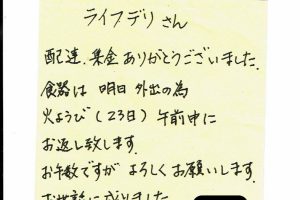 ライフデリ さん
配達、集金 ありがとうございました.
食器は 明日 外出の為
火ようび (23日) 午前中に
お返し致します.
お手数ですが よろしくお願いします.
お世話に成りました